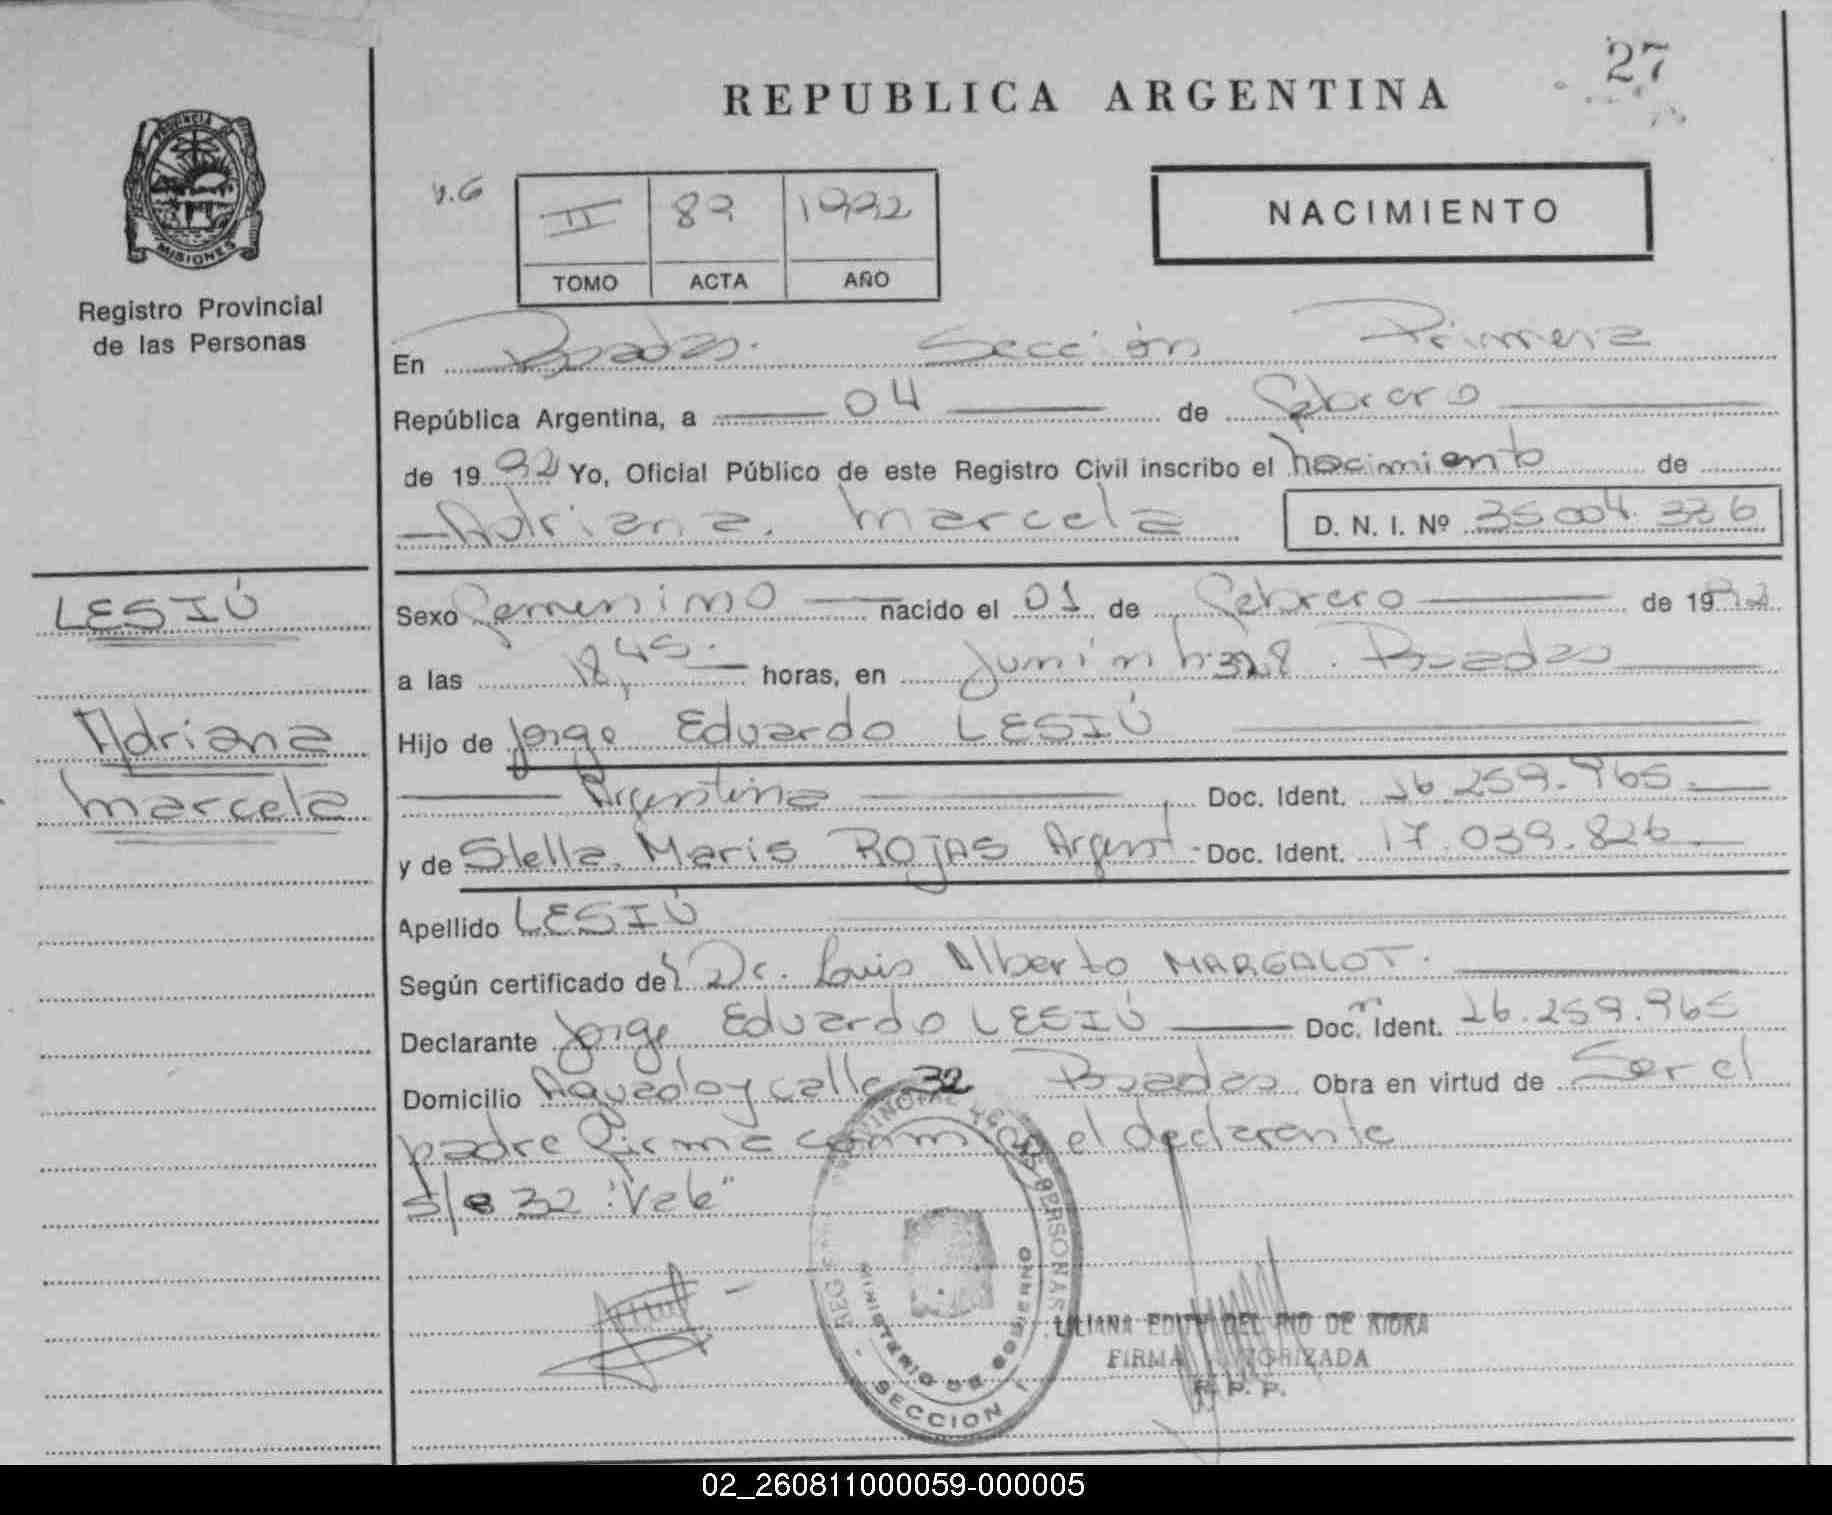 27
REPUBLICA ARGENTINA
PROVINCIA DE
MISIONES
Registro Provincial
de las Personas
V.6
II 89 1992
TOMO ACTA AÑO
NACIMIENTO
En Posadas. Sección Primera
República Argentina, a 04 de febrero
de 1992 Yo, Oficial Público de este Registro Civil inscribo el nacimiento de
Adriana Marcela D. N. I. Nº 35004.336
LESIÚ
Adriana
Marcela
Sexo femenino nacido el 01 de febrero de 1992
a las 18,45. horas, en Junín Posadas
Hijo de Jorge Eduardo LESIÚ
Argentina Doc. Ident. 16.259.965
y de Stella Maris ROJAS Argent. Doc. Ident. 17.039.826
Apellido LESIÚ
Según certificado de Dr. Luis Alberto MARGALOT.
Declarante Jorge Eduardo LESIÚ Doc. Ident. 16.259.965
Domicilio Aguado y calle 32 Posadas Obra en virtud de Ser el
padre firma conmigo el declarante
s/e 32 "Vale"
MINISTERIO DE GOBIERNO
SECCION
LILIANA EDITH DEL RIO DE
FIRMA AUTORIZADA
R. P. P.
02_260811000059-000005